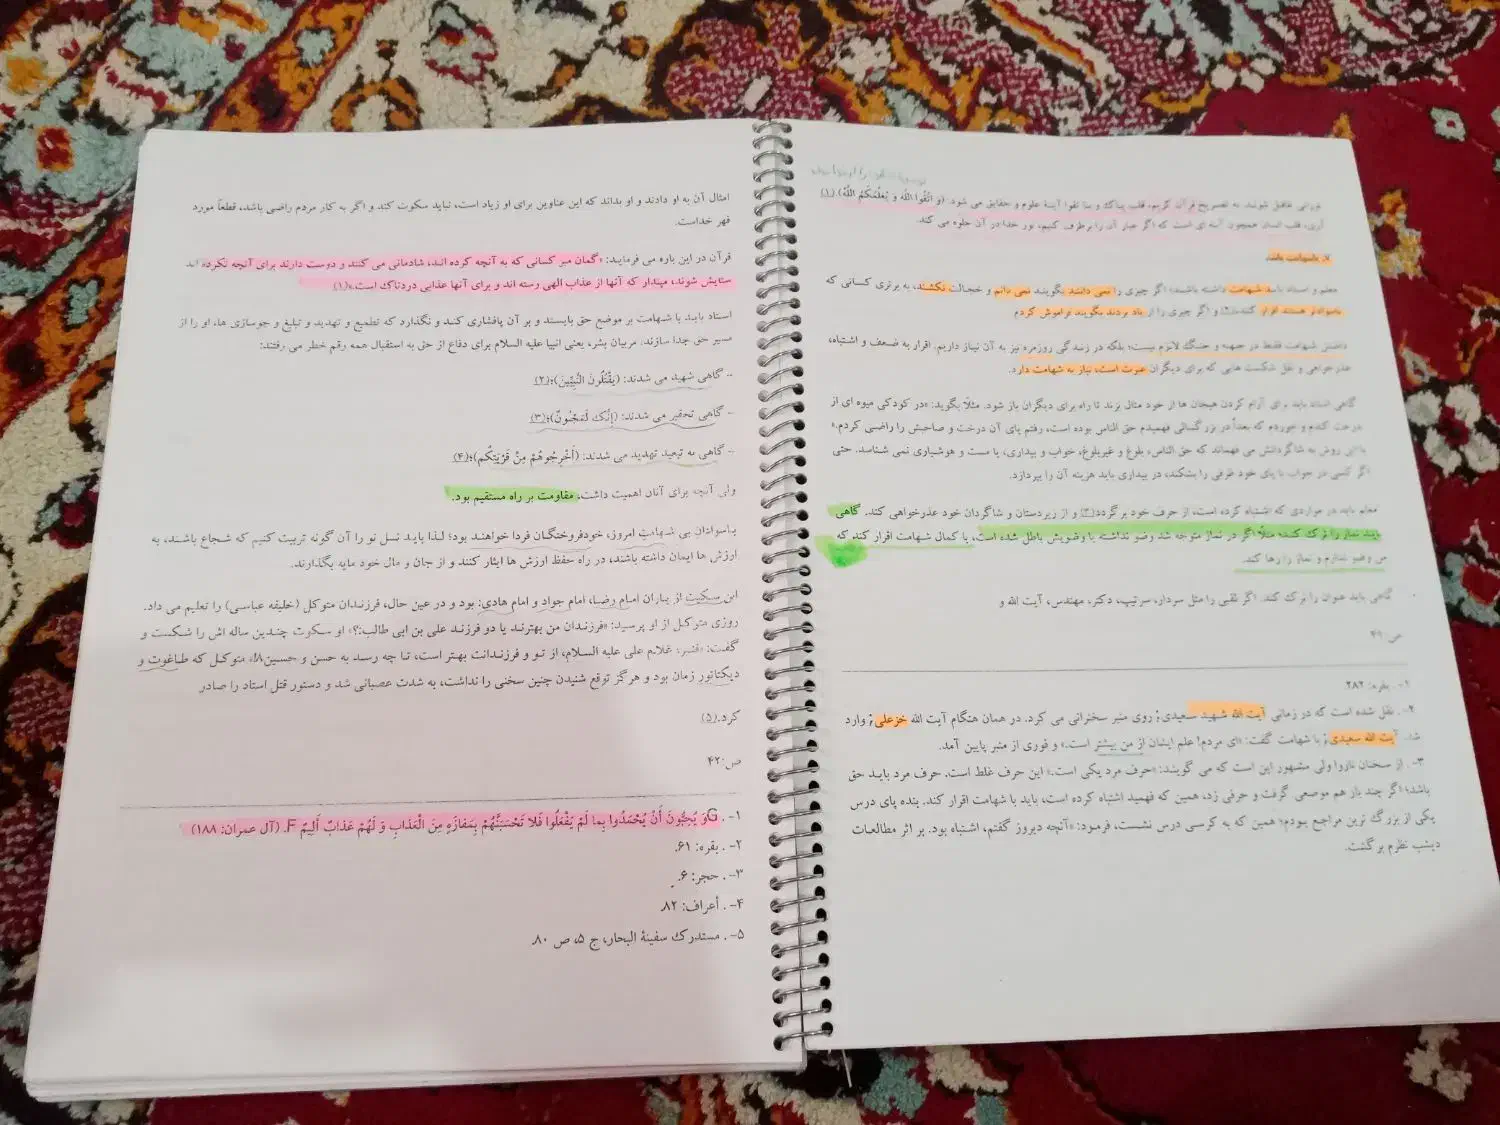 نورانی غافل شوند. به تصریح قرآن کریم، قلب پاک و با تقوا آینهٔ علوم و حقایق می شود. (وَ اتَّقُوا اللَّهَ وَ یُعَلِّمُکُمُ اللَّهُ) (۱)
آری، قلب انسان همچون آئینه ای است که اگر غبار آن را برطرف کنیم، نور خدا در آن جلوه می کند.
۷. باشهامت باشد
معلم و استاد باید شهامت داشته باشند؛ اگر چیزی را نمی دانند بگویند نمی دانم و خجالت نکشند، به برتری کسانی که
باسوادتر هستند اقرار کنند(۲) و اگر چیزی را از یاد بردند بگویند فراموش کردم
داشتن شهامت فقط در جبهه و جنگ لازم نیست؛ بلکه در زندگی روزمره نیز به آن نیاز داریم. اقرار به ضعف و اشتباه،
عذرخواهی و نقل شکست هایی که برای دیگران عبرت است، نیاز به شهامت دارد.
گاهی استاد باید برای آرام کردن هیجان ها از خود مثال بزند تا راه برای دیگران باز شود. مثلاً بگوید: «در کودکی میوه ای از
درخت کندم و خوردم که بعداً در بزرگسالی فهمیدم حق الناس بوده است، رفتم پای آن درخت و صاحبش را راضی کردم.»
با این روش به شاگردانش می فهماند که حق الناس، بلوغ و غیربلوغ، خواب و بیداری، یا مست و هوشیاری نمی شناسد. حتی
اگر کسی در خواب با پای خود ظرفی را بشکند، در بیداری باید هزینه آن را بپردازد.
معلم باید در مواردی که اشتباه کرده است، از حرف خود برگردد(۳) و از زیردستان و شاگردان خود عذرخواهی کند. گاهی
باید نماز را ترک کند؛ مثلًا اگر در نماز متوجه شد وضو نداشته یا وضویش باطل شده است، با کمال شهامت اقرار کند که
من وضو ندارم و نماز را رها کند.
گاهی باید عنوان را ترک کند. اگر لقبی را مثل سردار، سرتیپ، دکتر، مهندس، آیت الله و
ص:۴۱
۱- . بقره: ۲۸۲.
۲- . نقل شده است که در زمانی آیت الله شهید سعیدی; روی منبر سخنرانی می کرد. در همان هنگام آیت الله خزعلی; وارد
شد. آیت الله سعیدی; با شهامت گفت: «ای مردم! علم ایشان از من بیشتر است.» و فوری از منبر پایین آمد.
۳- . از سخنان ناروا ولی مشهور این است که می گویند: «حرف مرد یکی است.» این حرف غلط است. حرف مرد باید حق
باشد؛ اگر چند بار هم موضعی گرفت و حرفی زد، همین که فهمید اشتباه کرده است، باید با شهامت اقرار کند. بنده پای درس
یکی از بزرگ ترین مراجع بودم؛ همین که به کرسی درس نشست، فرمود: «آنچه دیروز گفتم، اشتباه بود. بر اثر مطالعات
دیشب نظرم برگشت.
امثال آن به او دادند و او بداند که این عناوین برای او زیاد است، نباید سکوت کند و اگر به کار مردم راضی باشد، قطعاً مورد
قهر خداست.
قرآن در این باره می فرماید: «گمان مبر کسانی که به آنچه کرده اند، شادمانی می کنند و دوست دارند برای آنچه نکرده اند
ستایش شوند، مپندار که آنها از عذاب الهی رسته اند و برای آنها عذابی دردناک است.»(۱)
استاد باید با شهامت بر موضع حق بایستد و بر آن پافشاری کند و نگذارد که تطمیع و تهدید و تبلیغ و جوسازی ها، او را از
مسیر حق جدا سازند. مربیان بشر، یعنی انبیا علیه السلام برای دفاع از حق به استقبال همه رقم خطر می رفتند:
- گاهی شهید می شدند: (یَقْتُلُونَ النَّبِیِّینَ)؛(۲)
- گاهی تحقیر می شدند: (إِنَّکَ لَمَجْنُونٌ)؛(۳)
- گاهی به تبعید تهدید می شدند: (أَخْرِجُوهُمْ مِنْ قَرْیَتِکُم)؛(۴)
ولی آنچه برای آنان اهمیت داشت، مقاومت بر راه مستقیم بود.
باسوادان بی شهامتِ امروز، خودفروختگان فردا خواهند بود؛ لذا باید نسل نو را آن گونه تربیت کنیم که شجاع باشند، به
ارزش ها ایمان داشته باشند، در راه حفظ ارزش ها ایثار کنند و از جان و مال خود مایه بگذارند.
ابن سکیت از یاران امام رضا، امام جواد و امام هادی: بود و در عین حال، فرزندان متوکل (خلیفه عباسی) را تعلیم می داد.
روزی متوکل از او پرسید: «فرزندان من بهترند یا دو فرزند علی بن ابی طالب:؟» او سکوت چندین ساله اش را شکست و
گفت: «قنبر، غلام علی علیه السلام، از تو و فرزندانت بهتر است، تا چه رسد به حسن و حسین۸!» متوکل که طاغوت و
دیکتاتور زمان بود و هرگز توقع شنیدن چنین سخنی را نداشت، به شدت عصبانی شد و دستور قتل استاد را صادر
کرد.(۵)
ص:۴۲
۱- . Gوَ یُحِبُّونَ أَنْ یُحْمَدُوا بِما لَمْ یَفْعَلُوا فَلا تَحْسَبَنَّهُمْ بِمَفازَهٍ مِنَ الْعَذابِ وَ لَهُمْ عَذابٌ أَلِیمٌ F. (آل عمران: ۱۸۸)
۲- . بقره: ۶۱.
۳- . حجر: ۶.
۴- . أعراف: ۸۲.
۵- . مستدرک سفینهٔ البحار، ج ۵، ص ۸۰.